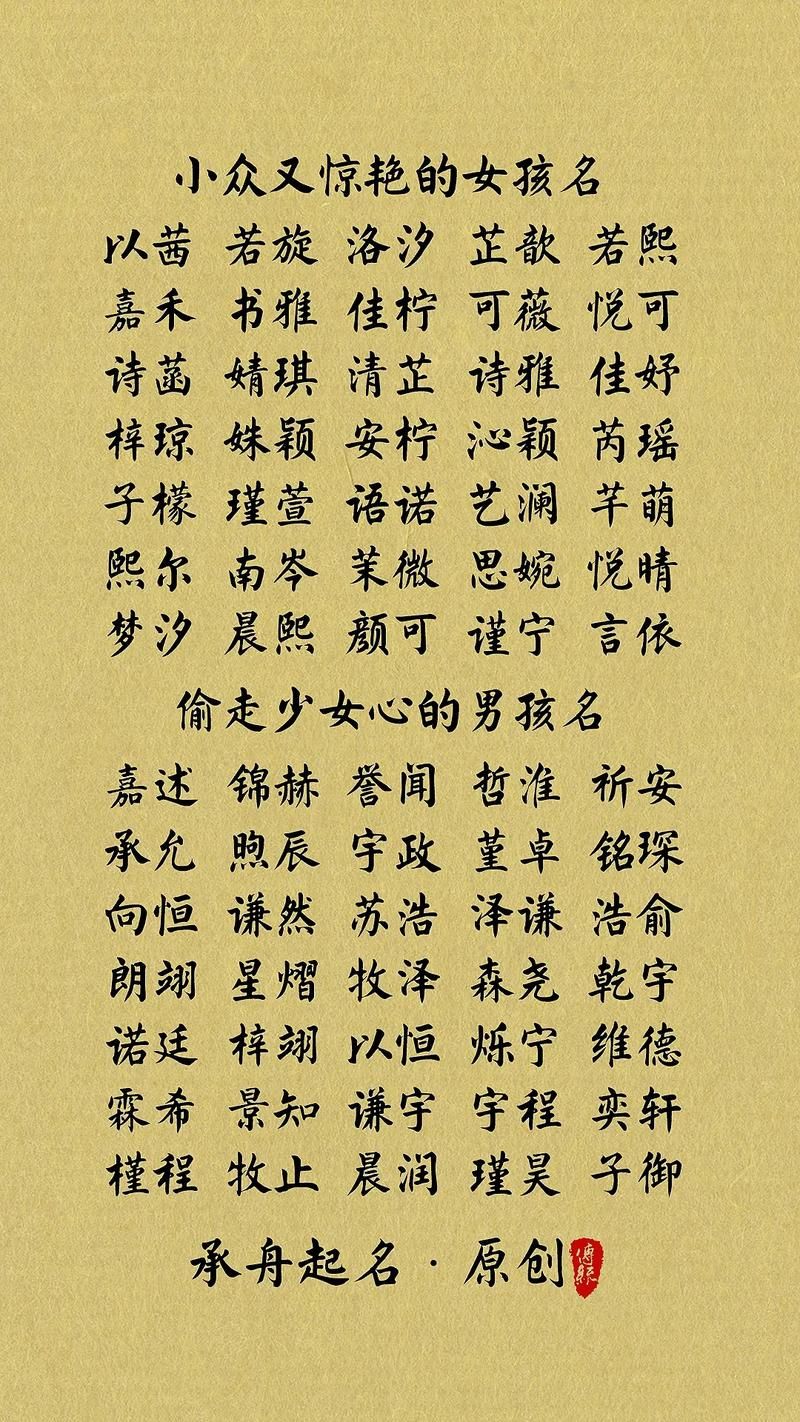 小众又惊艳的女孩名
以茜 若旋 洛汐 芷歆 若熙
嘉禾 书雅 佳柠 可薇 悦可
诗菡 婧琪 清芷 诗雅 佳妤
梓琼 姝颖 安柠 沁颖 芮瑶
子檬 瑾萱 语诺 艺澜 芊萌
熙尔 南岑 茉微 思婉 悦晴
梦汐 晨熙 颜可 谨宁 言依
偷走少女心的男孩名
嘉述 锦赫 誉闻 哲淮 祈安
承允 煦辰 宇政 堇卓 铭琛
向恒 谦然 苏浩 泽谦 浩俞
朗翊 星熠 牧泽 森尧 乾宇
诺廷 梓翊 以恒 烁宁 维德
霖希 景知 谦宇 宇程 奕轩
槿程 牧止 晨润 瑾昊 子御
承舟起名·原创
傳統